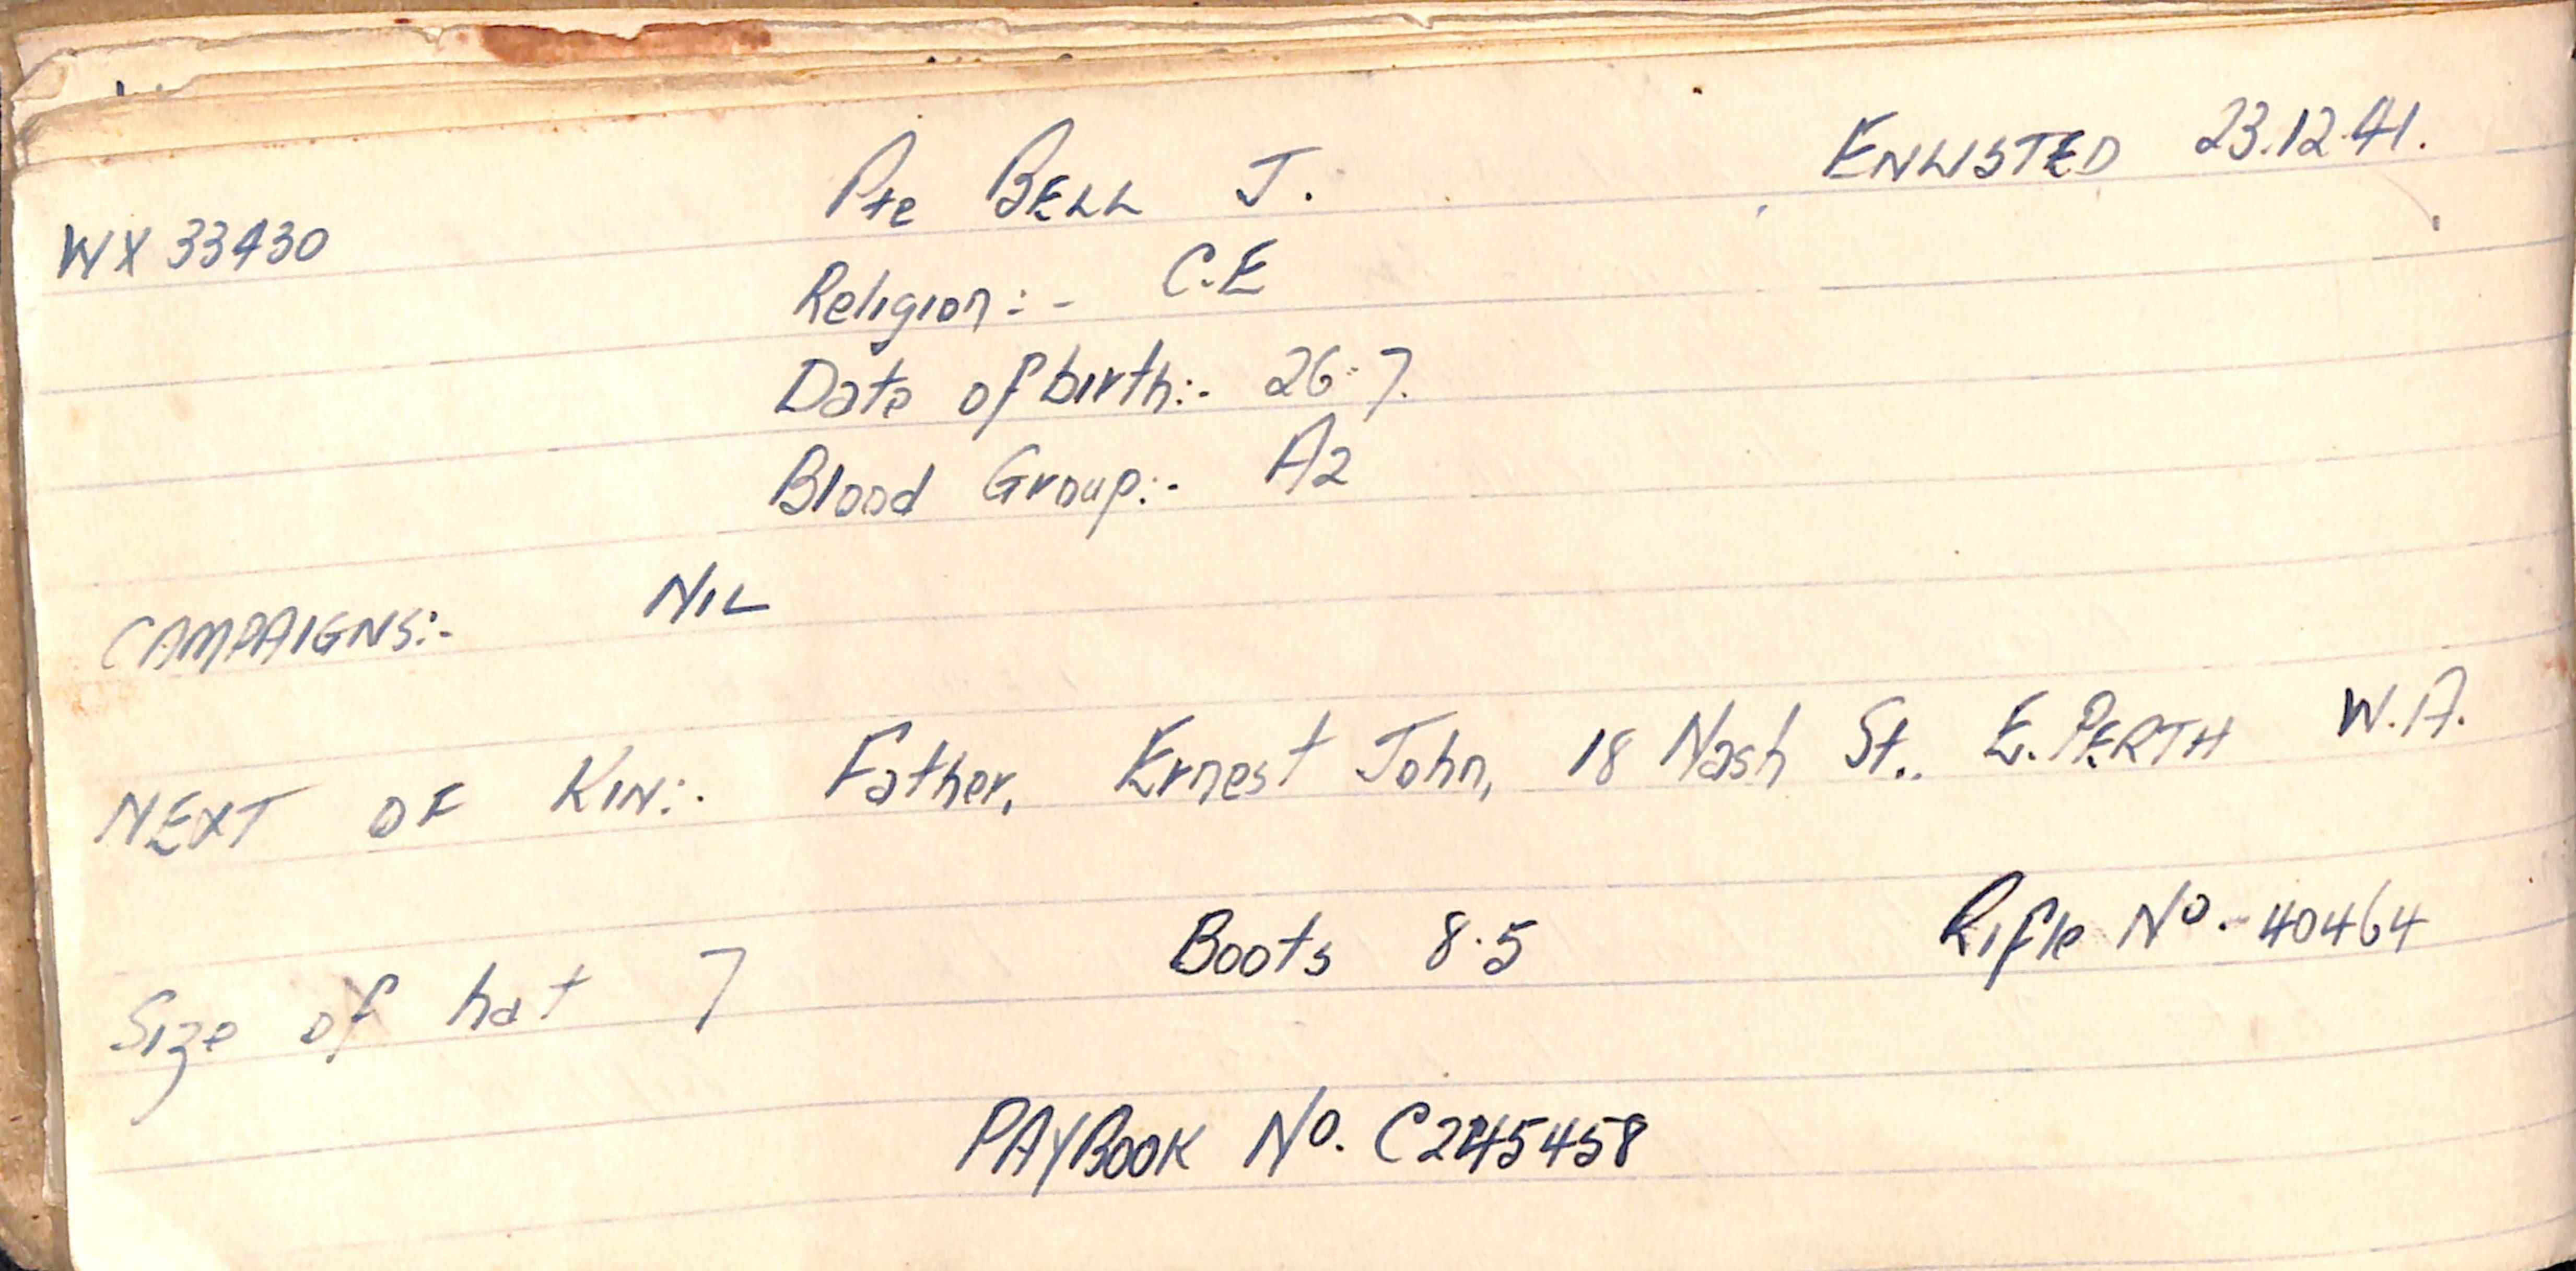 Pte BELL J. ENLISTED 23.12.41.
WX 33430
Religion:- C.E
Date of birth:- 26.7.
Blood Group:- A2
CAMPAIGNS:- NIL
NEXT OF KIN:- Father, Ernest John, 18 Nash St., E. PERTH W.A.
Size of hat 7 Boots 8.5 Rifle No. - 40464
PAYBOOK No.